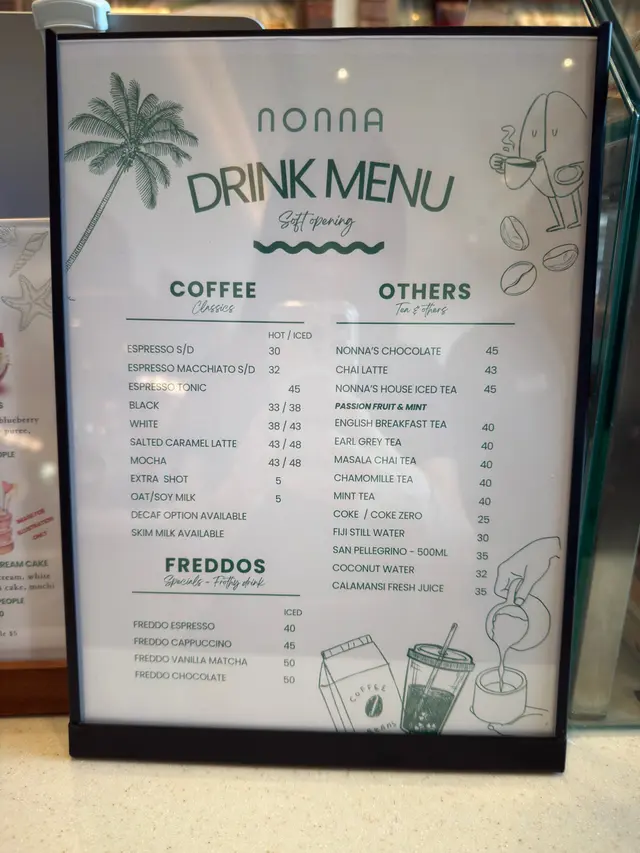 nonna
DRINK MENU
Soft opening
COFFEE
Classics
HOT / ICED
ESPRESSO S/D 30
ESPRESSO MACCHIATO S/D 32
ESPRESSO TONIC 45
BLACK 33 / 38
WHITE 38 / 43
SALTED CARAMEL LATTE 43 / 48
MOCHA 43 / 48
EXTRA SHOT 5
OAT/SOY MILK 5
DECAF OPTION AVAILABLE
SKIM MILK AVAILABLE
FREDDOS
Specials - Frothy drink
ICED
FREDDO ESPRESSO 40
FREDDO CAPPUCCINO 45
FREDDO VANILLA MATCHA 50
FREDDO CHOCOLATE 50
OTHERS
Tea & others
NONNA'S CHOCOLATE 45
CHAI LATTE 43
NONNA'S HOUSE ICED TEA 45
PASSION FRUIT & MINT
ENGLISH BREAKFAST TEA 40
EARL GREY TEA 40
MASALA CHAI TEA 40
CHAMOMILLE TEA 40
MINT TEA 40
COKE / COKE ZERO 25
FIJI STILL WATER 30
SAN PELLEGRINO - 500ML 35
COCONUT WATER 32
CALAMANSI FRESH JUICE 35
COFFEE
BEANS
blueberry
REAM CAKE
ream, white
cake, mocha
PEOPLE